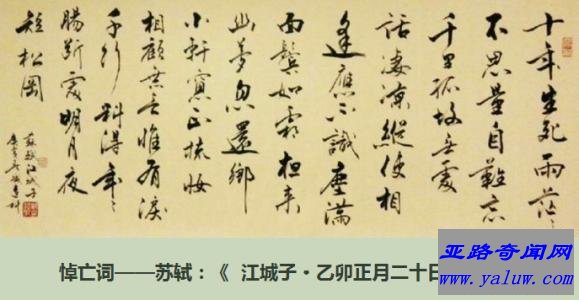 十年生死兩茫々
不思量自難忘
千里孤墳無處
話淒涼縱使相
逢應不識塵滿
面鬢如霜夜来
幽夢忽還鄉
小軒窗正梳妝
相顧無言惟有淚
千行料得年々
腸斷處明月夜
短松岡
蘇軾江城子
悼亡词——苏轼：《 江城子·乙卯正月二十日
亚路奇闻网
www.yaluw.com